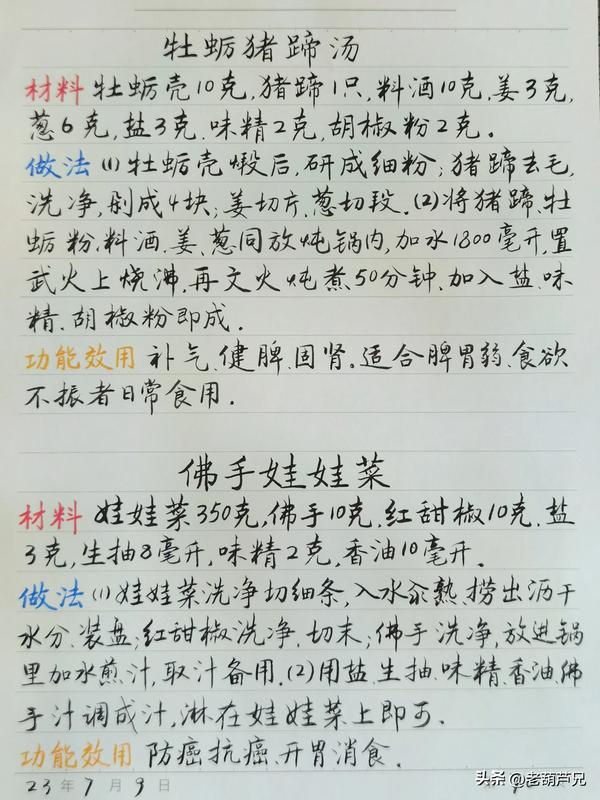 牡蛎猪蹄汤
材料 牡蛎壳10克,猪蹄1只,料酒10克,姜3克,
葱6克,盐3克、味精2克,胡椒粉2克。
做法 (1)牡蛎壳煅后,研成细粉;猪蹄去毛,
洗净,剁成4块;姜切片、葱切段。(2)将猪蹄、牡
蛎粉、料酒、姜、葱同放炖锅内,加水1800毫升,置
武火上烧沸,再文火炖煮50分钟、加入盐、味
精、胡椒粉即成。
功能效用 补气、健脾、固肾。适合脾胃弱、食欲
不振者日常食用。
佛手娃娃菜
材料 娃娃菜350克,佛手10克,红甜椒10克、盐
3克,生抽8毫升,味精2克,香油10毫升。
做法 (1)娃娃菜洗净切细条,入水汆熟、捞出沥干
水分、装盘;红甜椒洗净、切末;佛手洗净,放进锅
里加水煎汁,取汁备用。(2)用盐、生抽、味精、香油、佛
手汁调成汁,淋在娃娃菜上即可。
功能效用 防癌抗癌、开胃消食。
23年7月9日
头条 @老葫芦兄